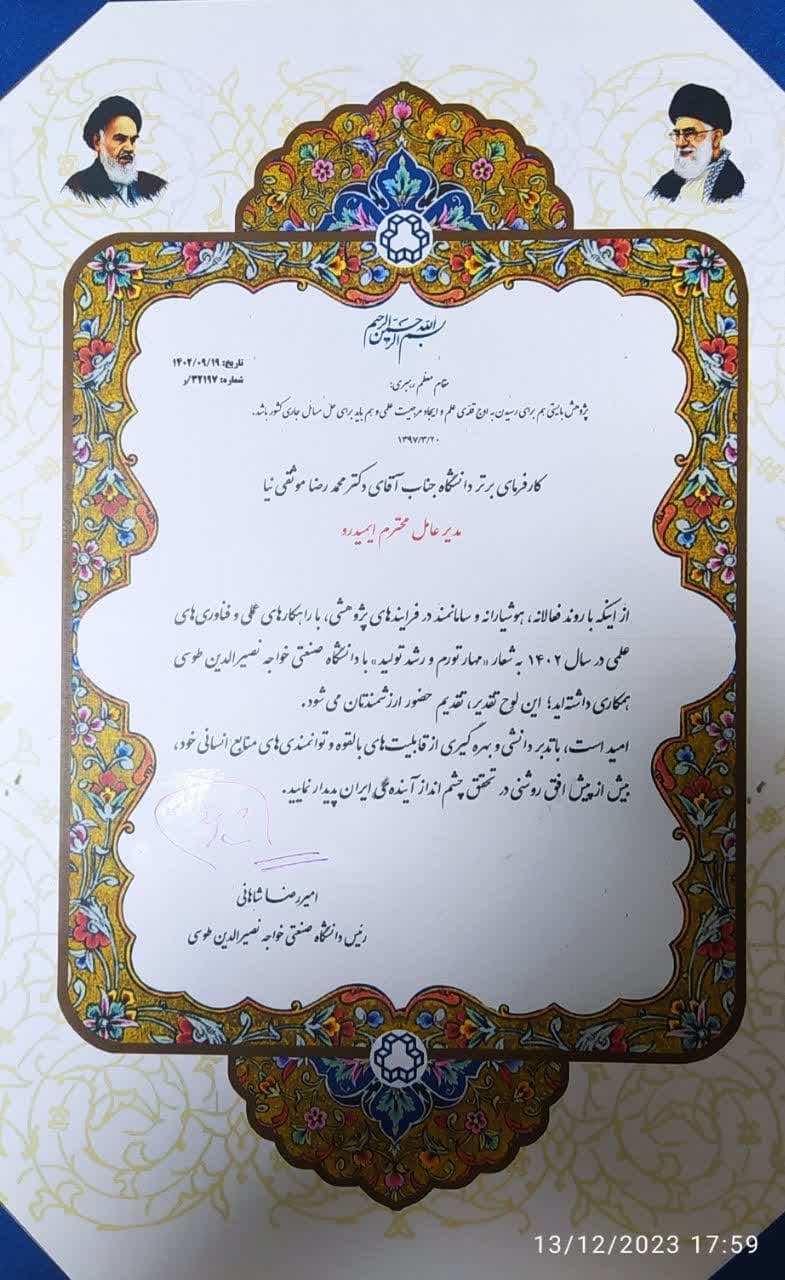 بسم الله الرحمن الرحیم
تاریخ: ۱۴۰۲/۰۹/۱۹
شماره: ۳۲۱۹۷/و
مقام معظم رهبری:
پژوهش بایستی هم برای رسیدن به اوج قله‌ی علم و ایجاد مرجعیت علمی و هم باید برای حل مسائل جاری کشور باشد.
۱۳۹۷/۳/۲۰
کارفرمای برتر دانشگاه جناب آقای دکتر محمد رضا موثقی نیا
مدیر عامل محترم ایمیدرو
از اینکه با روند فعالانه، هوشیارانه و سامانمند در فرایندهای پژوهشی، با راهکارهای عملی و فناوری‌های
علمی در سال ۱۴۰۲ به شعار «مهار تورم و رشد تولید» با دانشگاه صنعتی خواجه نصیرالدین طوسی
همکاری داشته‌اید؛ این لوح تقدیر، تقدیم حضور ارزشمندتان می شود.
امید است، با تدبر دانشی و بهره گیری از قابلیت‌های بالقوه و توانمندی‌های منابع انسانی خود،
بیش از پیش افق روشنی در تحقق چشم انداز آینده ملی ایران پدیدار نمایید.
امیررضا شاهانی
رئیس دانشگاه صنعتی خواجه نصیرالدین طوسی
13/12/2023 17:59